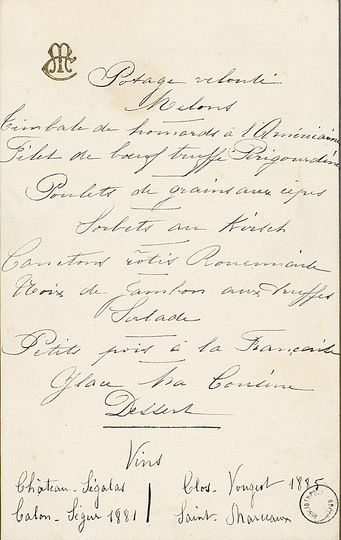 Potage velouté
Melons
Timbale de homards à l'Américaine
Filet de bœuf truffé Périgourdine
Poulets de grains aux cèpes
Sorbets au Kirsch
Canetons rôtis Rouennaise
Noix de Jambon aux truffes
Salade
Petits pois à la Française
Glace Ma Cousine
Dessert
Vins
Château-Ségalas
Clos-Vougeot 1885
Calon-Ségur 1881
Saint-Marceaux